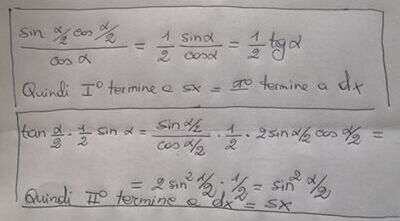 sin α/2 cos α/2 / cos α = 1/2 sin α / cos α = 1/2 tg α
Quindi I° termine a sx = II° termine a dx
tan α/2 · 1/2 sin α = sin α/2 / cos α/2 · 1/2 · 2 sin α/2 cos α/2 =
= 2 sin² α/2 · 1/2 = sin² α/2
Quindi II° termine a dx = sx